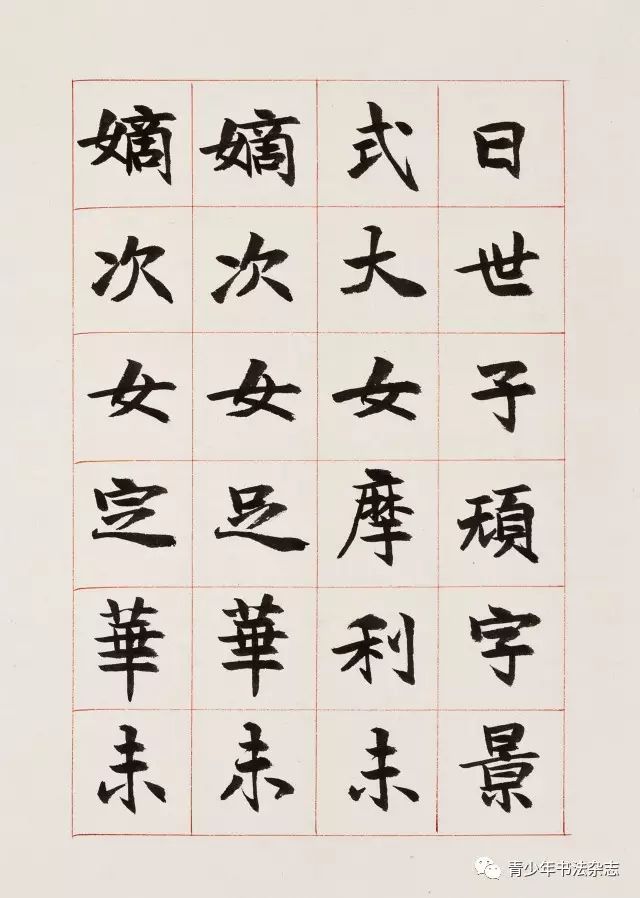 曰世子頊字景
式大女摩利未
嫡次女足華未
嫡次女定華未
青少年书法杂志